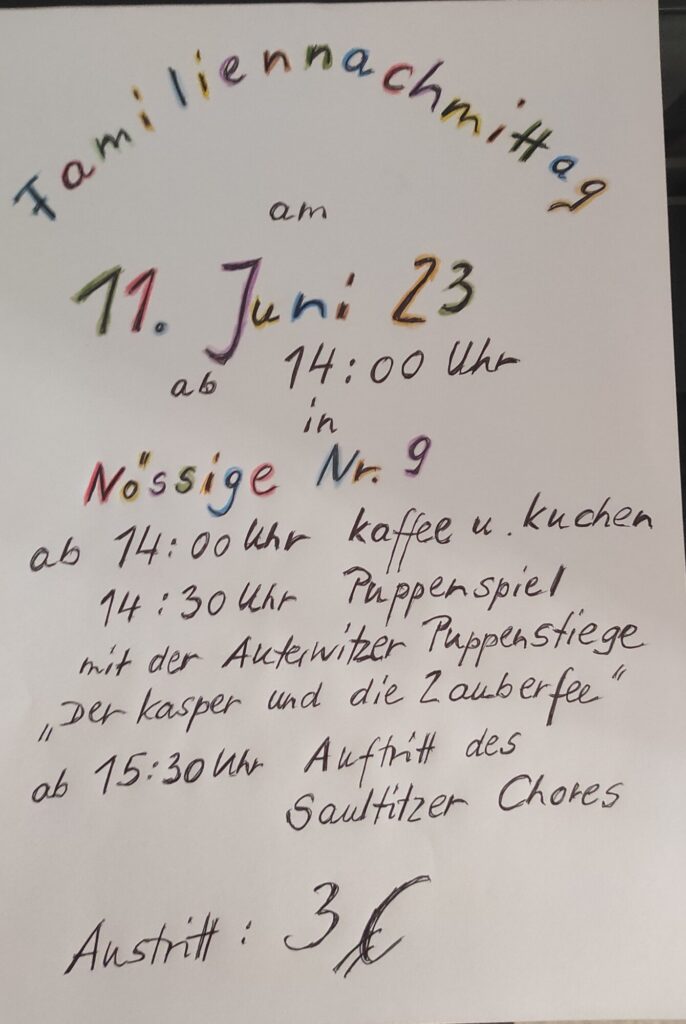 Familiennachmittag
am
11. Juni 23
ab 14:00 Uhr
in
Nössige Nr. 9
ab 14:00 Uhr Kaffee u. Kuchen
14:30 Uhr Puppenspiel
mit der Auterwitzer Puppenstiege
„Der Kasper und die Zauberfee“
ab 15:30 Uhr Auftritt des
Saultitzer Chores
Austritt: 3 €